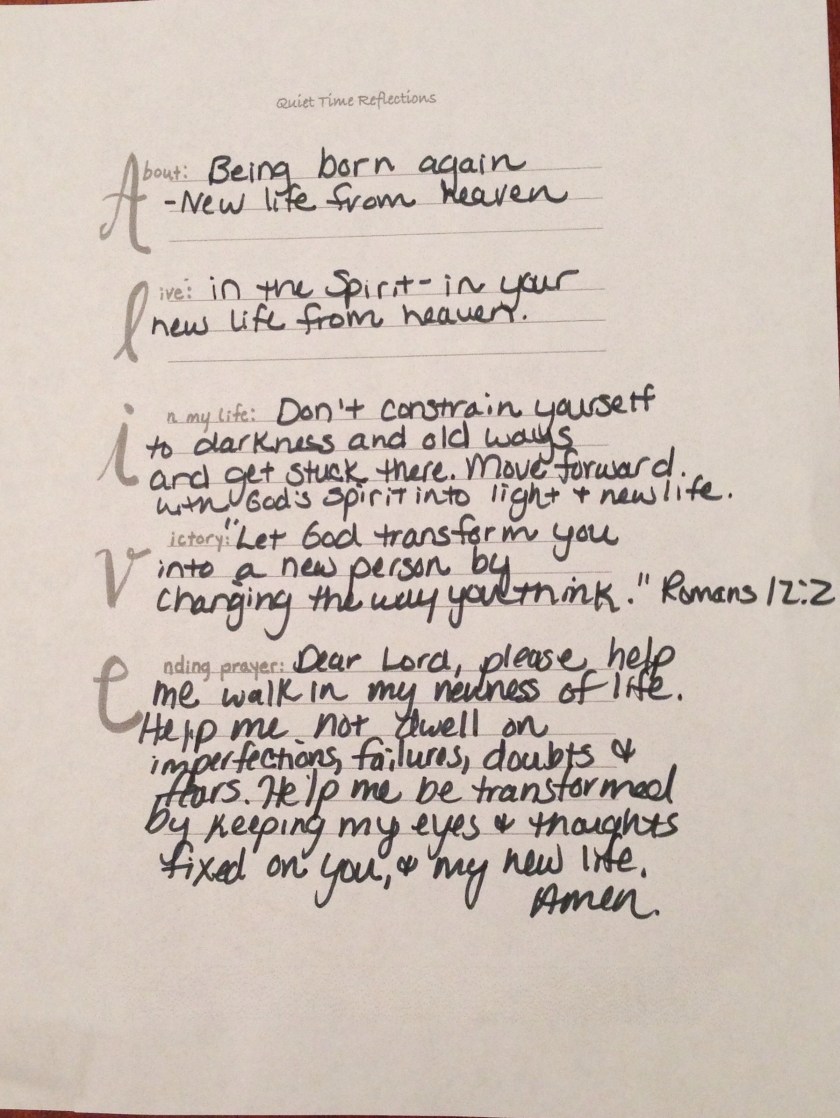 Quiet Time Reflections
About: Being born again
-New life from heaven
live: in the Spirit- in your
new life from heaven.
in my life: Don't constrain yourself
to darkness and old ways
and get stuck there. Move forward.
with God's spirit into light & new life.
victory: "Let God transform you
into a new person by
changing the way you think." Romans 12:2
ending prayer: Dear Lord, please help
me walk in my newness of life.
Help me not dwell on
imperfections, failures, doubts &
fears. Help me be transformed
by keeping my eyes & thoughts
fixed on you, & my new life.
Amen.